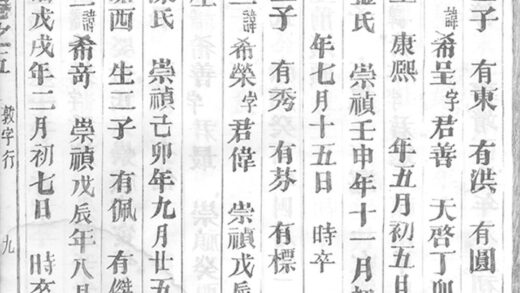 子 有東 有洪 有圓
諱希呈字君善 天啓丁卯
康熙 年五月初五日
氏 崇禎壬申年十一月初
年七月十五日 時卒
子 有秀 有芬 有標
諱希榮字君偉 崇禎戊辰
氏 崇禎己卯年九月廿五
西 生三子 有佩 有傑
諱希奇 崇禎戊辰年八月
戊戌年二月初七日 時卒
五 敦字行 九